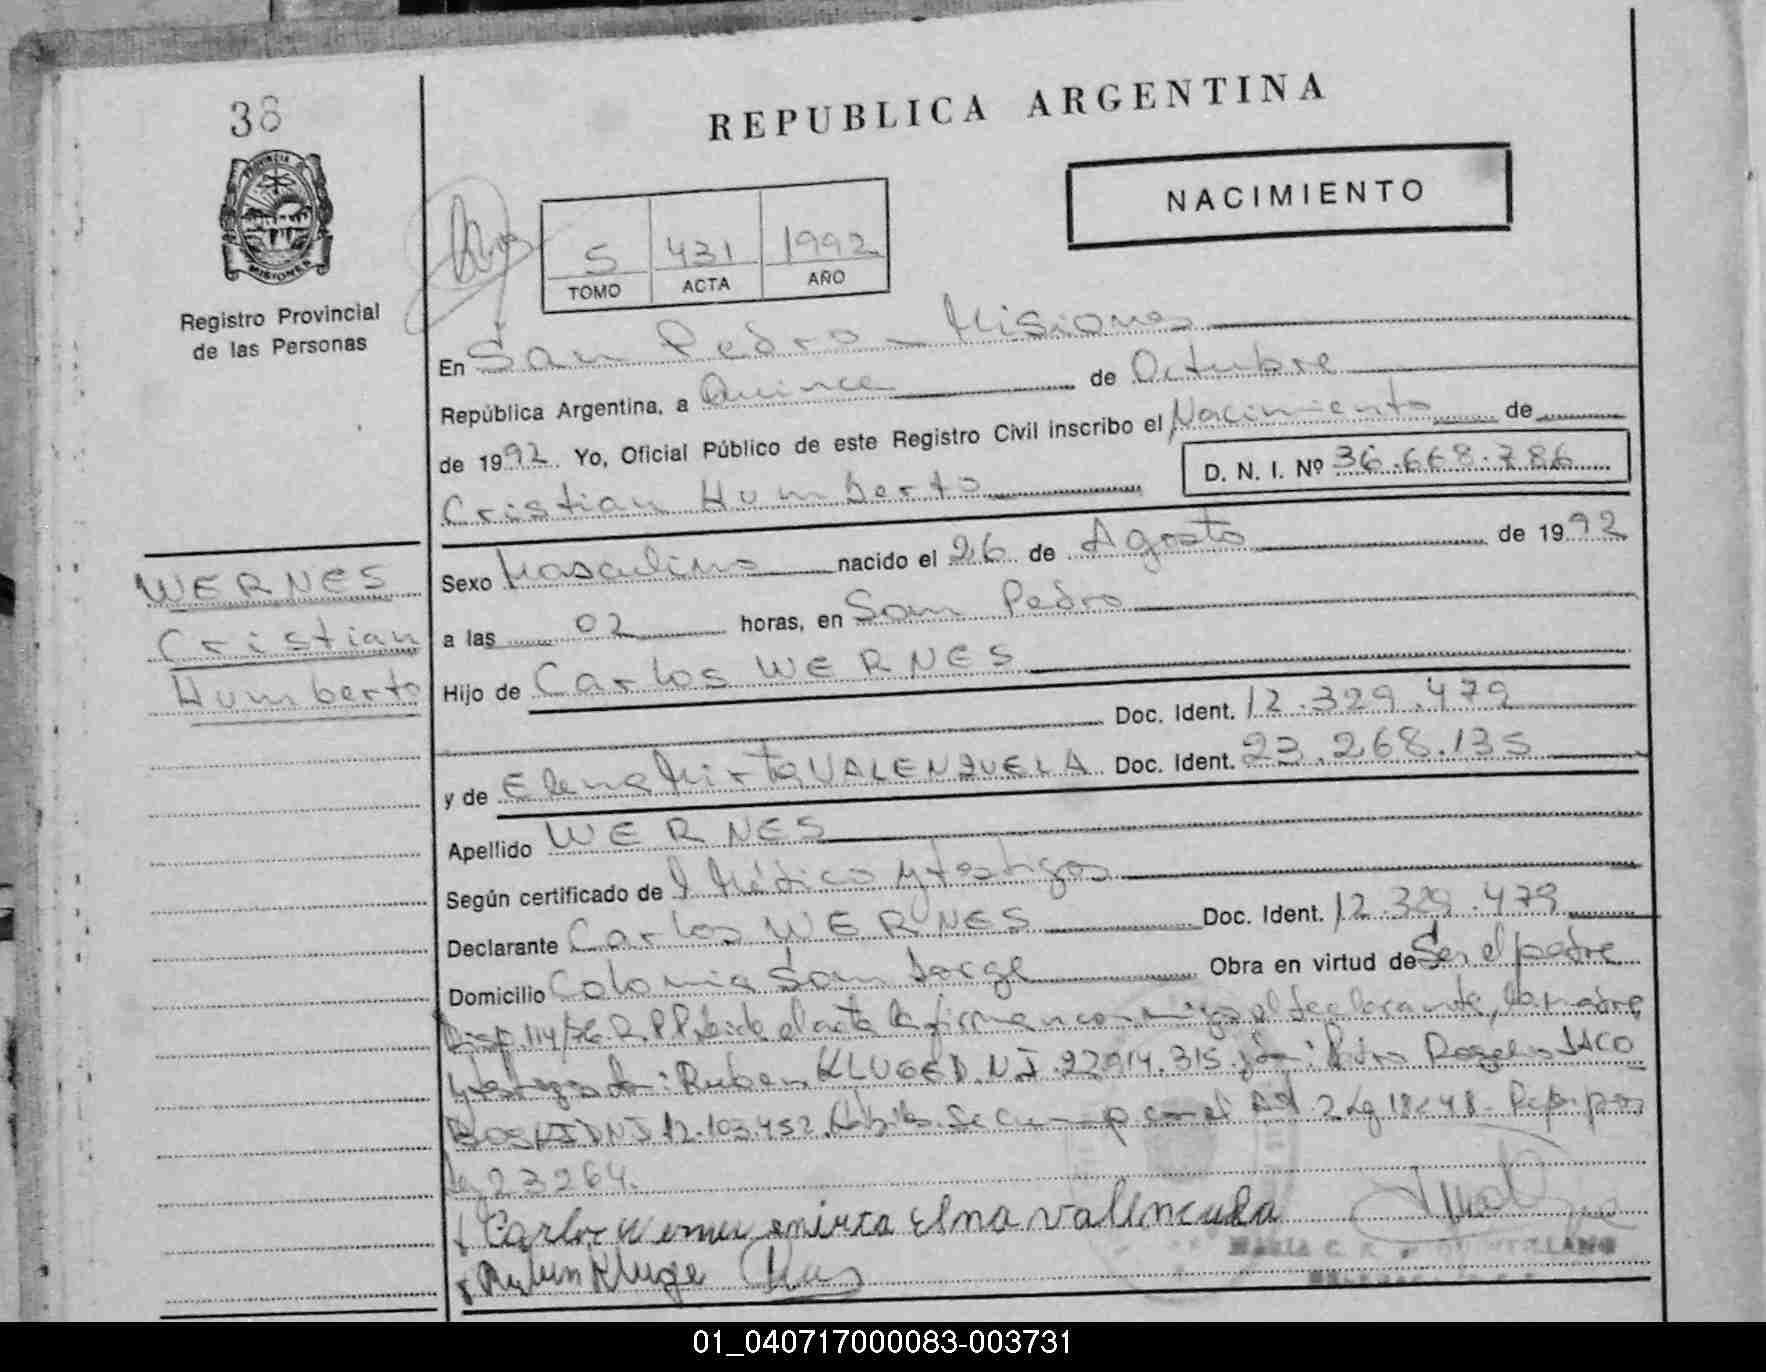 38
PROVINCIA DE
MISIONES
Registro Provincial
de las Personas
REPUBLICA ARGENTINA
NACIMIENTO
5 431 1992
TOMO ACTA AÑO
En San Pedro - Misiones
República Argentina, a Quince de Octubre
de 1992 Yo, Oficial Público de este Registro Civil inscribo el Nacimiento de
Cristian Humberto D. N. I. Nº 36.668.786
WERNES
Cristian
Humberto
Sexo Masculino nacido el 26 de Agosto de 1992
a las 02 horas, en San Pedro
Hijo de Carlos WERNES
Doc. Ident. 12.329.479
y de Elena Mirta VALENZUELA Doc. Ident. 23.268.135
Apellido WERNES
Según certificado de Médico y testigos
Declarante Carlos WERNES Doc. Ident. 12.329.479
Domicilio Colonia San Jorge Obra en virtud de Ser el padre
Disp. 114/76. R.P.P. el acta la firman conmigo el declarante, la madre
y testigos Ruben KLUGE D.N.I. 22.914.315 Pedro Rogelio JACO
BOSKI DNI 12.103.452 Se con el Art 2 Lg 18248
Ley 23264.
Carlos Wernes mirta Elna valencuela
Ruben Kluge
MARIA C.
01_040717000083-003731